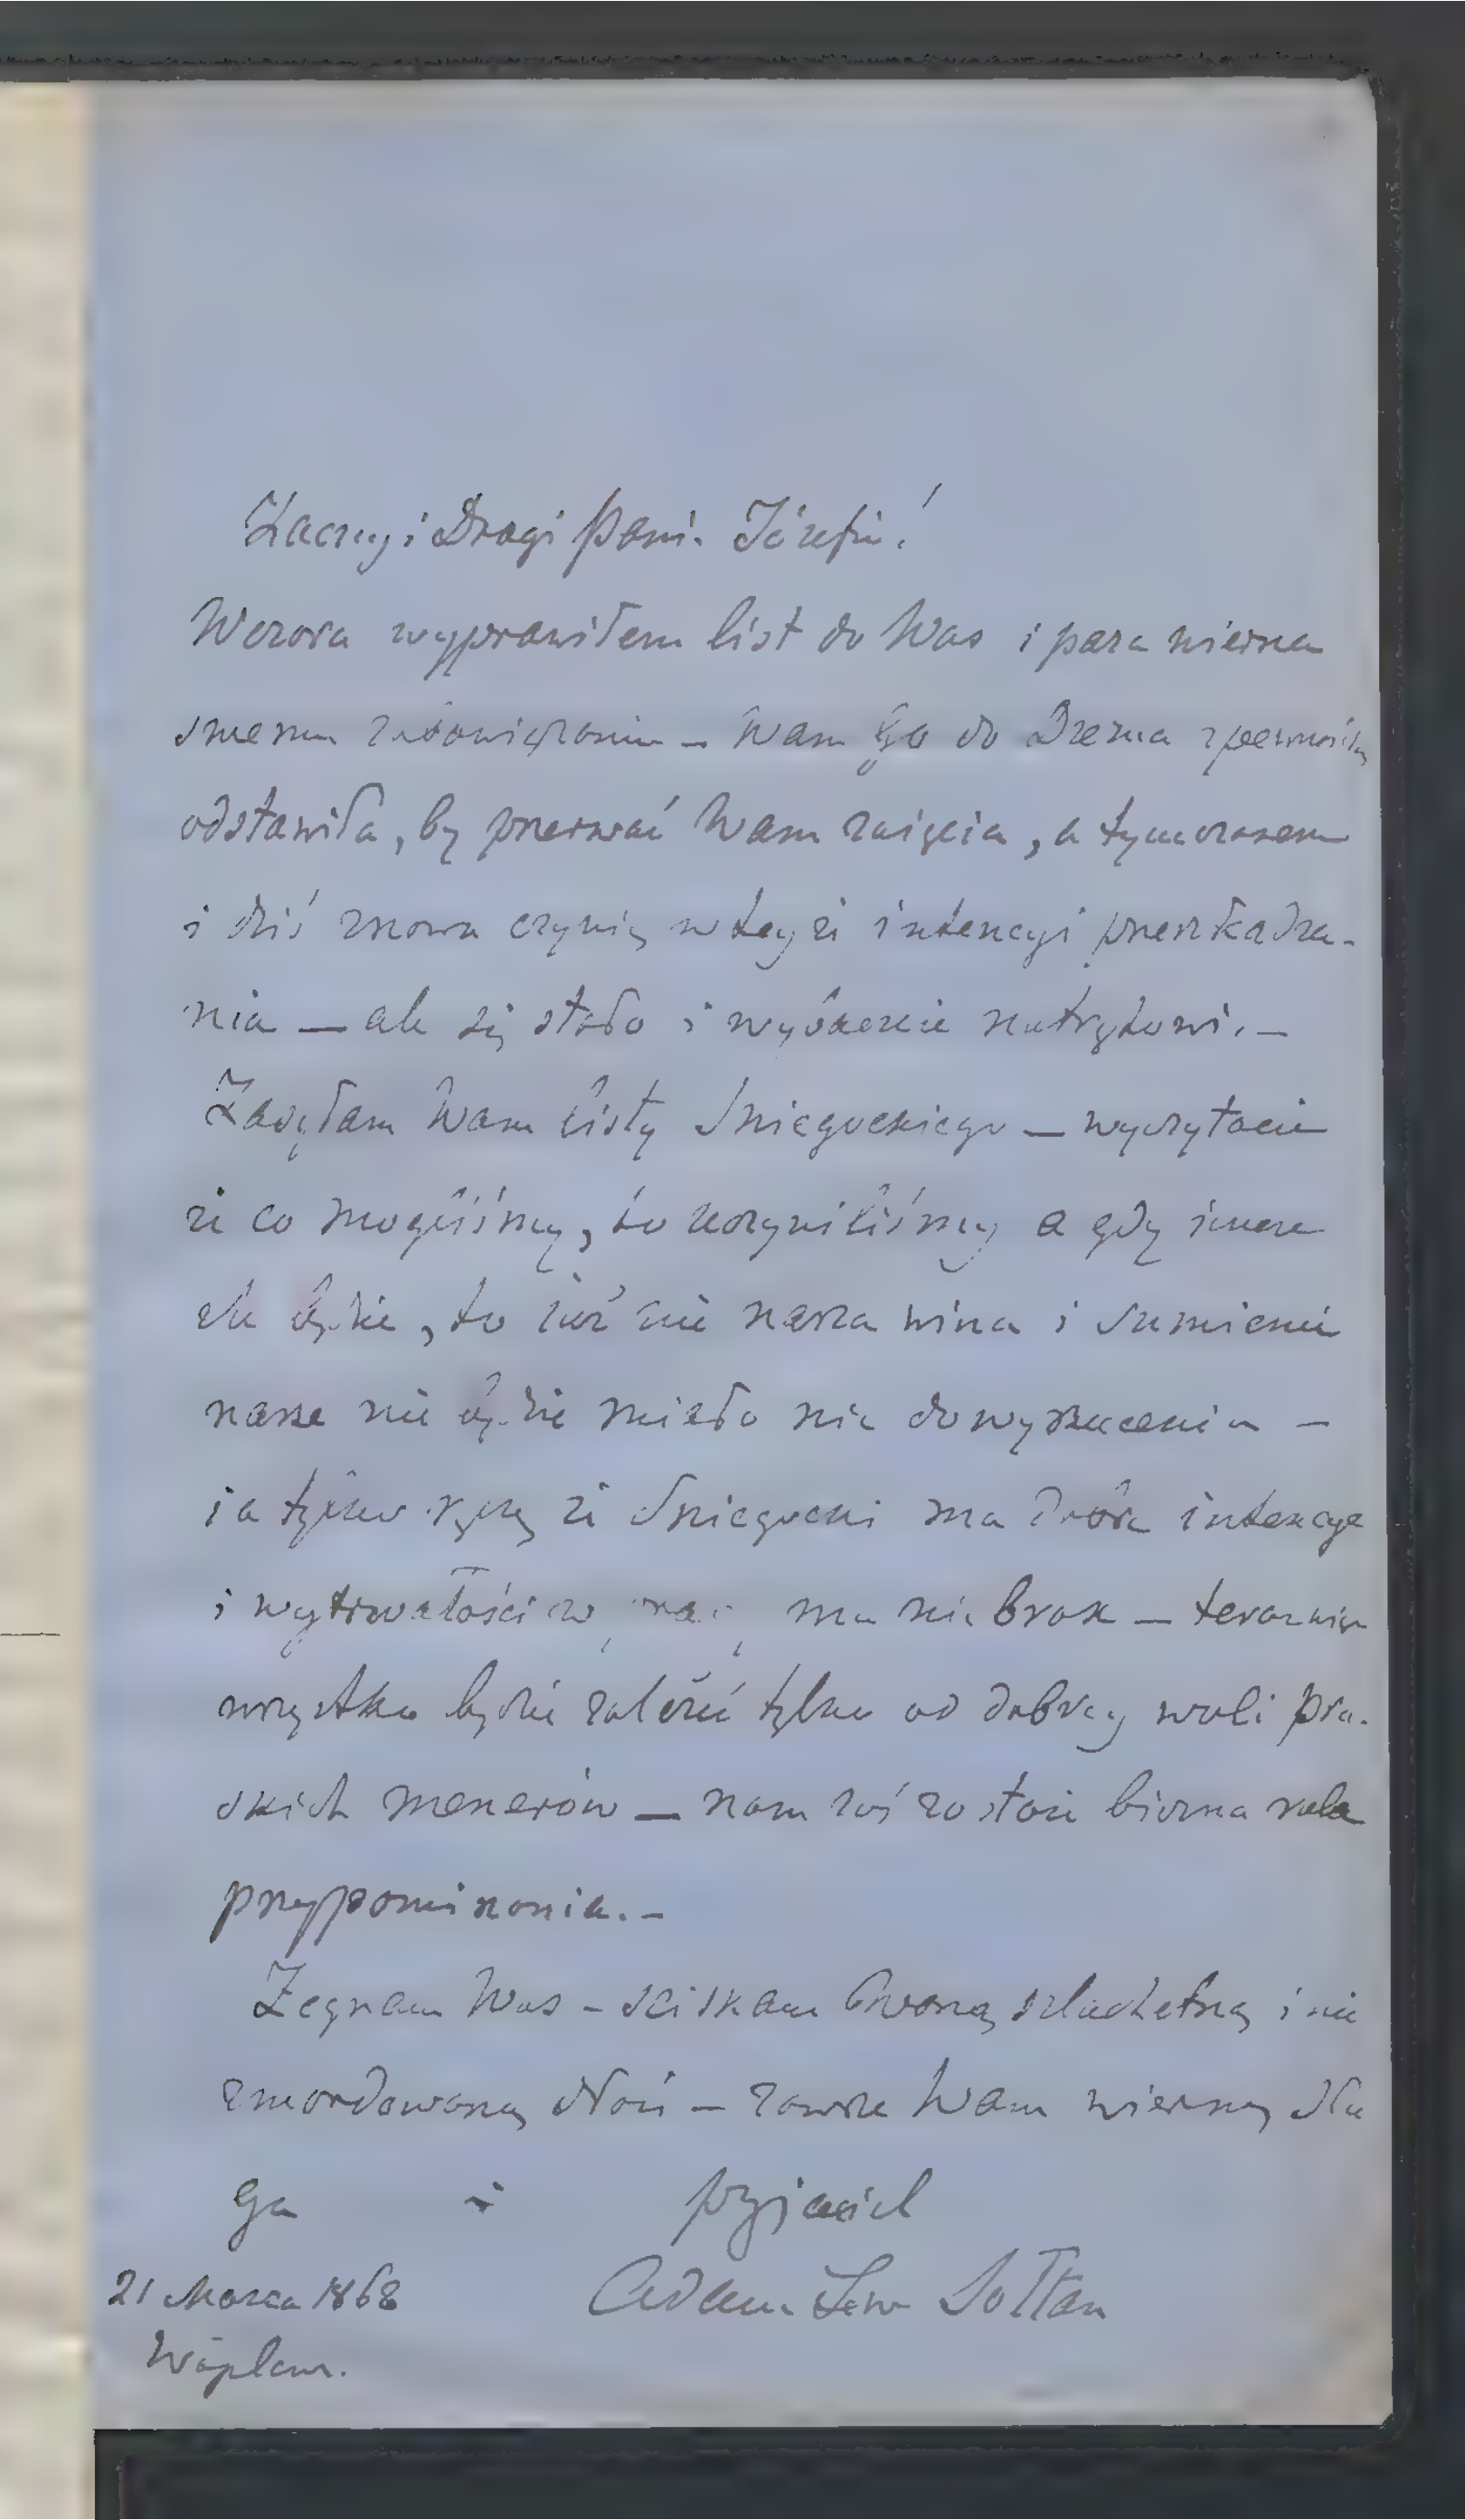 Zacny i Drogi Panie Józefie!
Wczora wyprawiłem list do Was i para wierna
swemu zobowiązaniu – Wam go do Drezna z pewnością
odstawiła, by przerwać Wam zajęcia, a tymczasem
i dziś znowu czynię w tejże intencyi przeszkadza-
nia – ale się stało i wybaczcie natrętowi. –
Zasyłam Wam listy Sniegockiego – wyczytacie
że co mogliśmy, to uczyniliśmy a gdy
źle będzie, to już nie nasza wina i sumienie
nasze nie będzie miało nic do wyrzucenia –
ja tylko ręczę że Sniegocki ma dobre intencye
i wytrwałości w pracy mu nie brak – teraz więc
wszystko będzie zależeć tylko od dobrej woli pra-
skich menerów – nam zaś zostaje bierna rola
przypominania. –
Żegnam Was – sciskam Twoną szlachetną i nie
zmordowaną dłoń – zawsze Wam wierny słu
ga i przyjaciel
Adam Lew Sołtan
21 Marca 1868
Waplew.